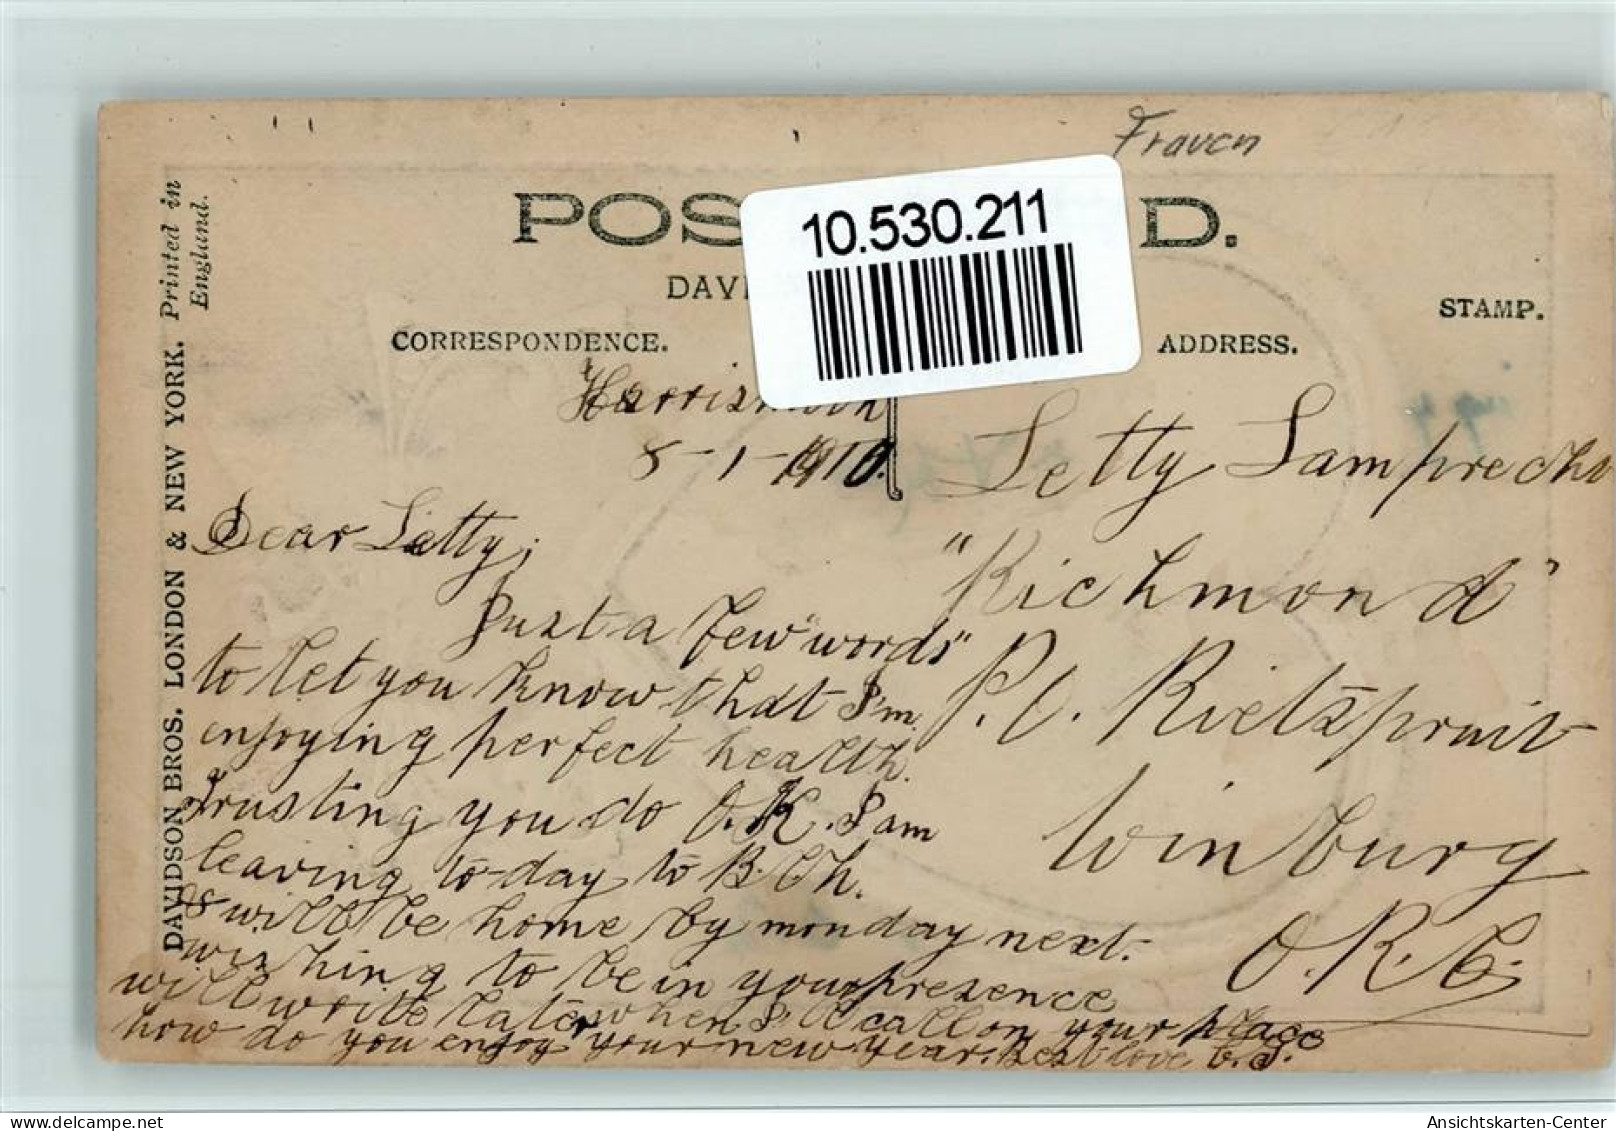 Frauen
POS D.
10.530.211
DAVI
CORRESPONDENCE.
ADDRESS.
STAMP.
DAVIDSON BROS. LONDON & NEW YORK. Printed in
England.
Harrismith
8-1-1910.
Dear Letty,
Just a few "words"
to let you know that I'm
enjoying perfect health.
Trusting you do O.K. I am
leaving to-day to B.
will be home by monday next.
wishing to be in your presence
will write later when I'll call on your place
how do you enjoy your new year. Best love
Letty Lamprecht
"Richmond"
P.O. Rietspruit
Winburg
O.R.C.
Ansichtskarten-Center